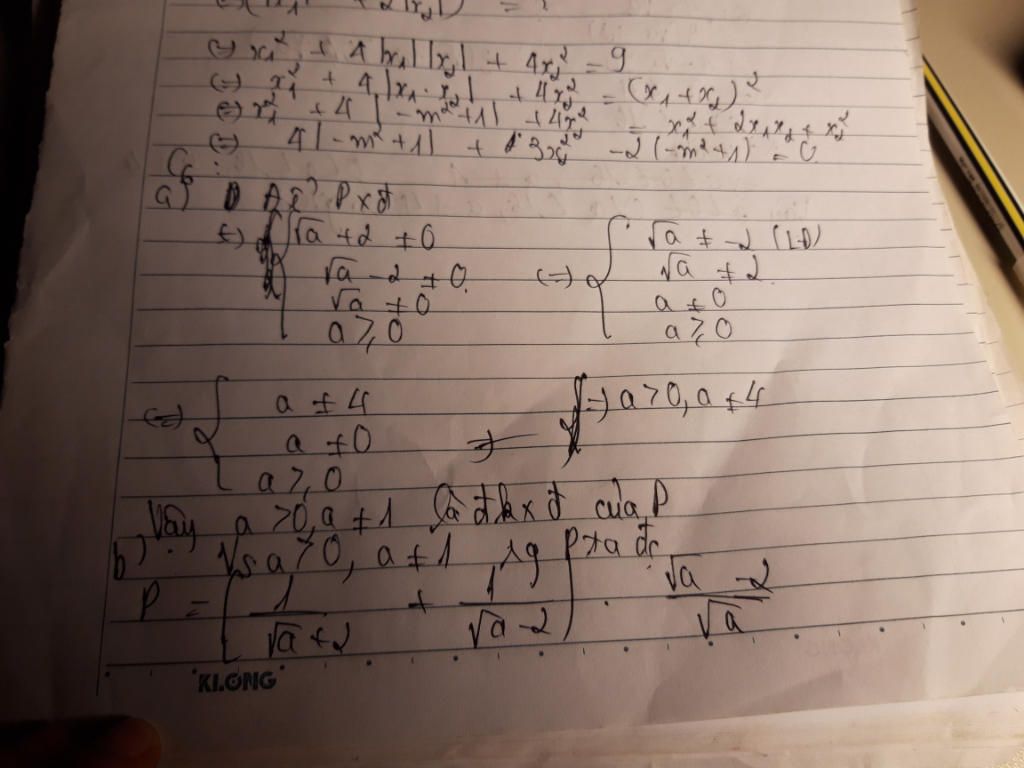 ⇔ x₁² + 4|x₁||x₂| + 4x₂² = 9
⇔ x₁² + 4|x₁.x₂| + 4x₂² = (x₁+x₂)²
⇔ x₁² + 4|-m²+1| + 4x₂² = x₁² + 2x₁x₂ + x₂²
⇔ 4|-m²+1| + 3x₂² - 2(-m²+1) = 0
C6:
a) Để P xđ
⇔ { √a + 2 ≠ 0 ⇔ { √a ≠ -2 (LĐ)
√a - 2 ≠ 0 √a ≠ 2
√a ≠ 0 a ≠ 0
a ≥ 0 a ≥ 0
⇔ { a ≠ 4 ⇒ a > 0, a ≠ 4
a ≠ 0
a ≥ 0
Vậy a > 0, a ≠ 1 là đkxđ của P
b) Vs a > 0, a ≠ 1 P ta đc
P = [ 1/(√a + 2) + 1/(√a - 2) ] . (√a - 2)/√a
KLONG